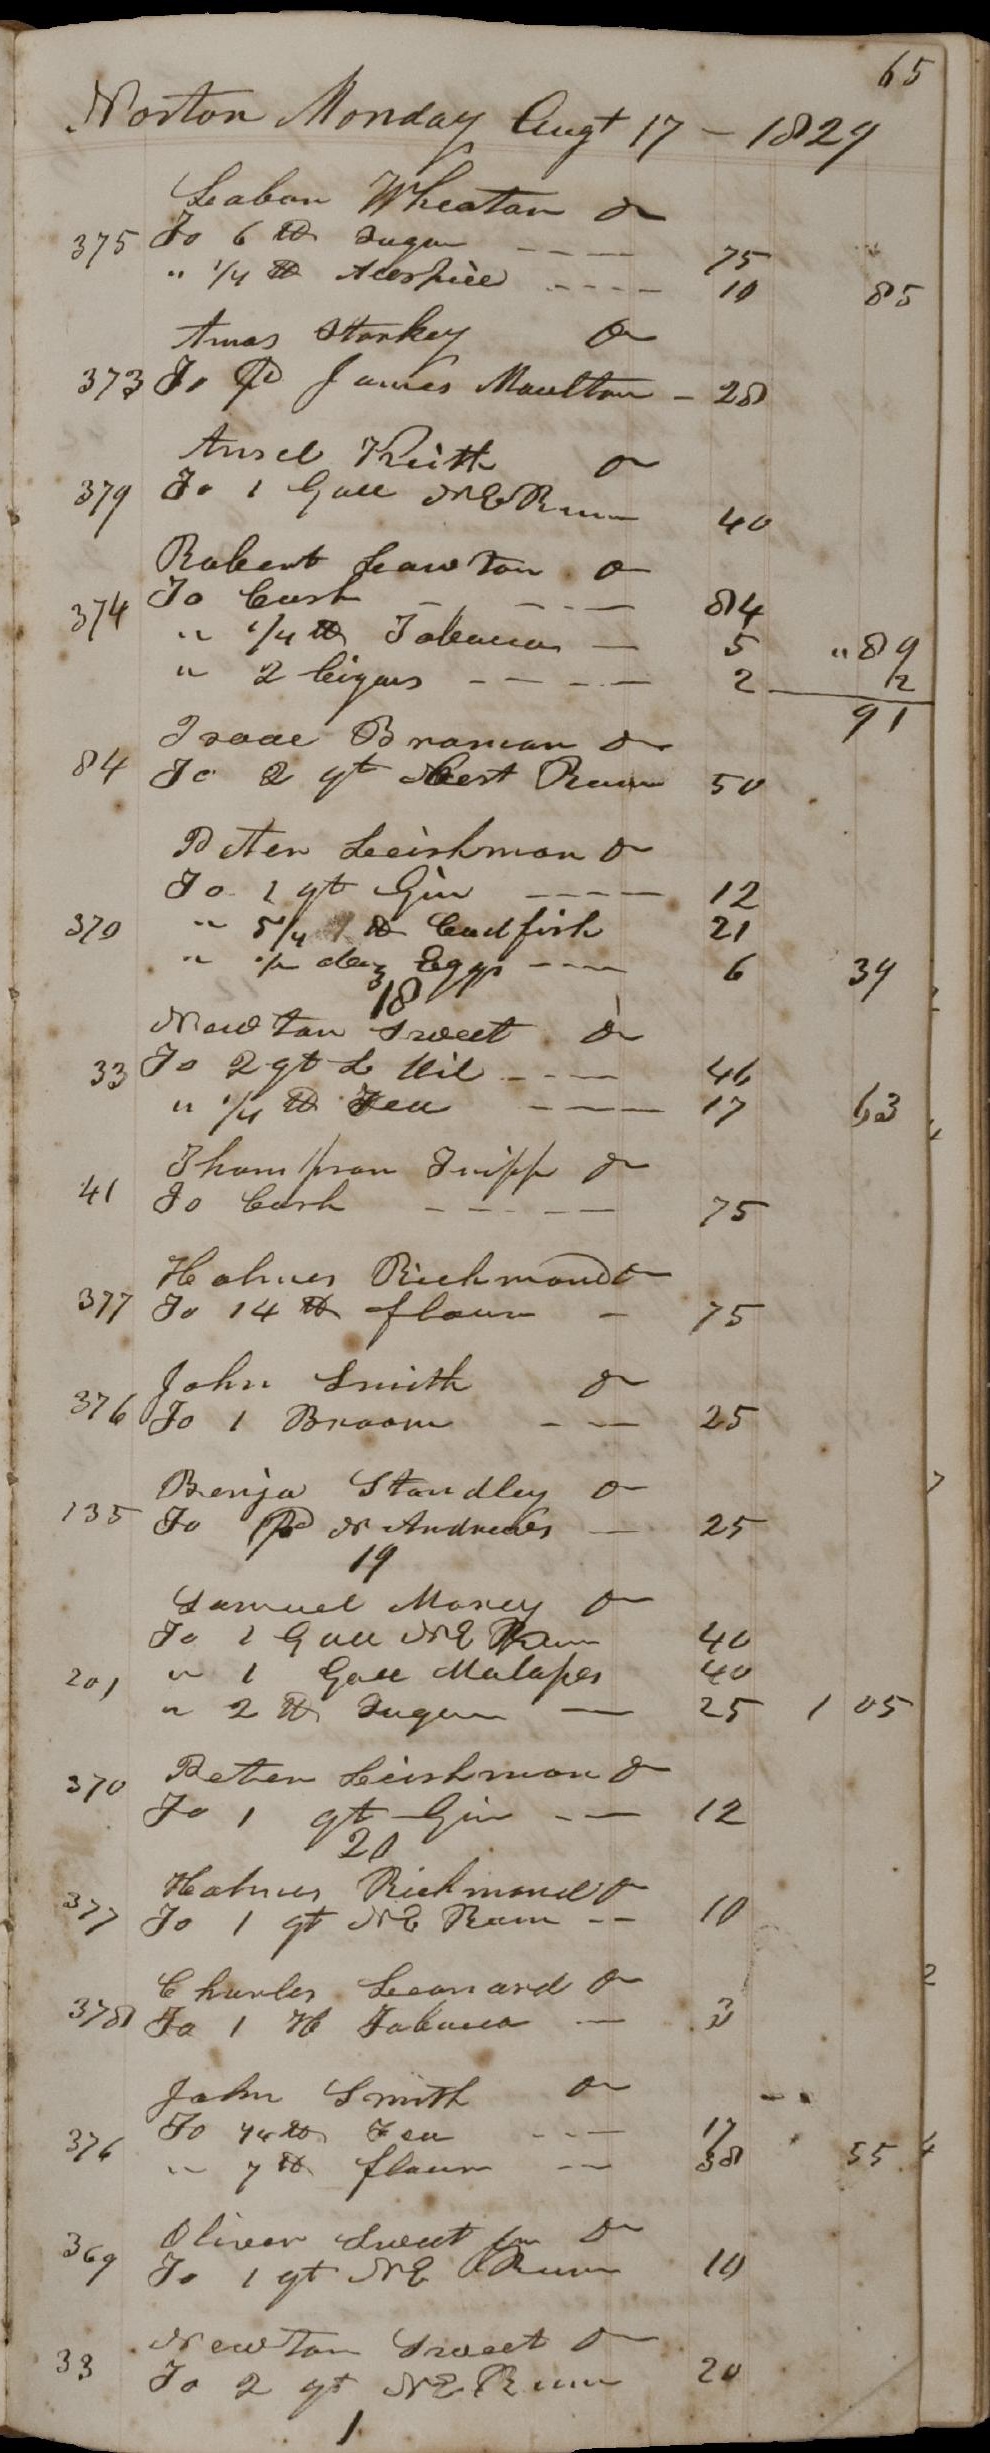 65
Norton Monday Augt 17 - 1829
Laban Wheaton Dr
375 To 6 lb Sugar - - - - 75
" 1/4 lb Alespice - - - - 10 85
Amos Starkey Dr
373 To Pd James Moulton - 28
Ansel Keith Dr
379 To 1 Gall N E Rum 40
Robert Lawton Dr
374 To Cash - - - - 84
" 1/4 lb Tobacco - 5 "89
" 2 Cigars - - - - 2 2
91
Isaac Braman Dr
84 To 2 qt West Rum 50
Peter Leishman Dr
To 1 qt Gin - - - - 12
370 " 5/4 lb Codfish 21
" 1/2 doz Eggs - - - 6 39
18
Newton Sweet Dr
33 To 2 qt L Oil - - - 46
" 1/4 lb Tea - - - - 17 63
Thompson Tripp Dr
41 To Cash - - - - - 75
Holmes Richmond Dr
377 To 14 lb flour - 75
John Smith Dr
376 To 1 Broom - - - 25
Benja Standley Dr
135 To Pd N Andrews - 25
19
Samuel Morey Dr
To 1 Gall N E Rum 40
201 " 1 Gall Malasses 40
" 2 lb Sugar - 25 1 05
370 Peter Leishman Dr
To 1 qt Gin - - 12
20
Holmes Richmond Dr
377 To 1 qt N E Rum - - 10
Charles Leonard Dr
378 To 1 H Tobacco - 3
John Smith Dr
376 To 1/4 lb Tea - - - 17
" 7 lb flour - - 38 55
Oliver Sweet Jr Dr
369 To 1 qt N E Rum 10
Newton Sweet Dr
33 To 2 qt N E Rum 20
1